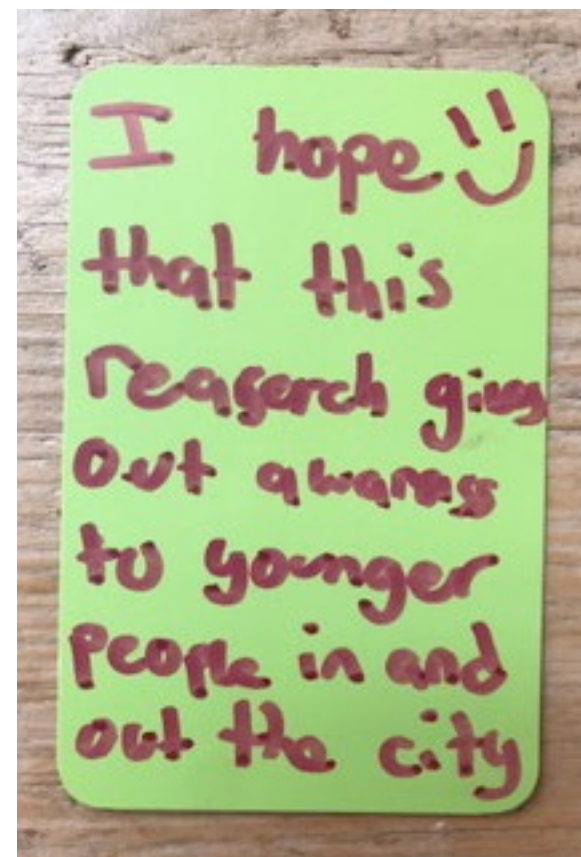 I hope
that this
reaserch gives
out awarness
to younger
people in and
out the city